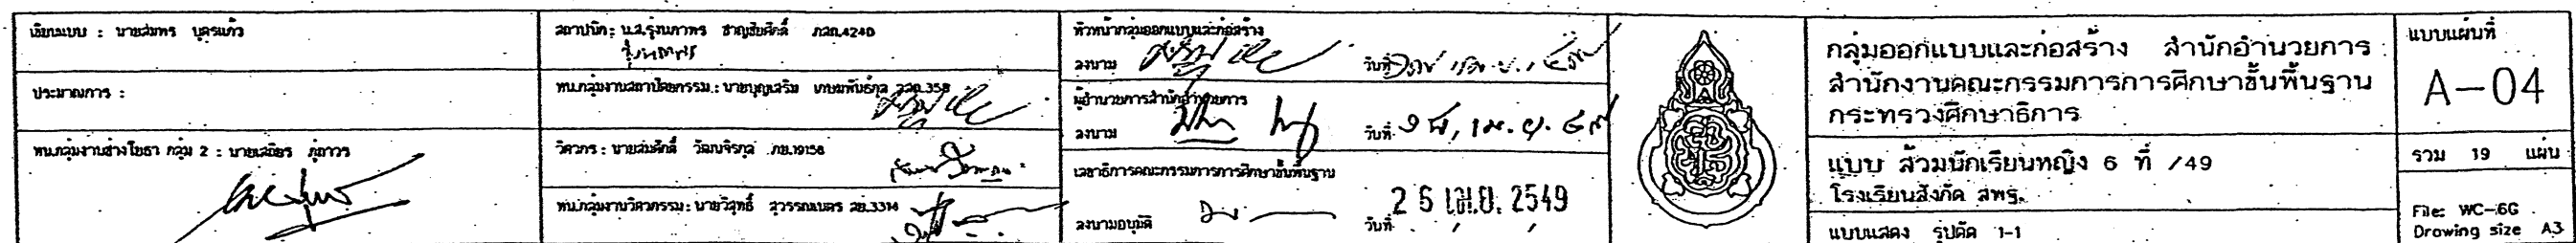 เขียนแบบ : นายสมพร บุตรแก้ว
ประมาณการ :
หน.กลุ่มงานช่างโยธา กลุ่ม 2 : นายเสถียร ภู่ถาวร
สถาปนิก : น.ส.รุ่งนภาพร ชาญชัยศักดิ์ ภสถ.4240
รุ่งนภาพร
หน.กลุ่มงานสถาปัตยกรรม : นายบุญเสริม เกษมพันธ์กุล สสถ.358
วิศวกร : นายสมศักดิ์ วัฒนจิรกุล ภย.19156
หน.กลุ่มงานวิศวกรรม : นายวิสุทธิ์ สุวรรณเนตร สย.3314
หัวหน้ากลุ่มออกแบบและก่อสร้าง
ลงนาม วันที่
ผู้อำนวยการสำนักอำนวยการ
ลงนาม วันที่
เลขาธิการคณะกรรมการการศึกษาขั้นพื้นฐาน
ลงนามอนุมัติ วันที่ 26 เม.ย. 2549
กลุ่มออกแบบและก่อสร้าง สำนักอำนวยการ
สำนักงานคณะกรรมการการศึกษาขั้นพื้นฐาน
กระทรวงศึกษาธิการ
แบบ ส้วมนักเรียนหญิง 6 ที่ /49
โรงเรียนสังกัด สพฐ.
แบบแสดง รูปตัด 1-1
แบบแผ่นที่
A-04
รวม 19 แผ่น
File: WC-6G
Drawing size A3